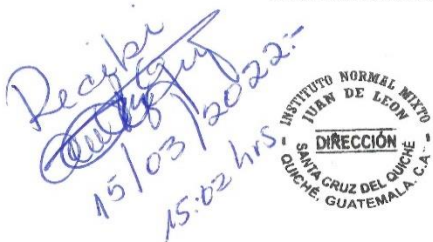 Recibí
15/03/2022.-
15:02 hrs
INSTITUTO NORMAL MIXTO
JUAN DE LEON
DIRECCIÓN
SANTA CRUZ DEL QUICHÉ
QUICHÉ, GUATEMALA, C.A.